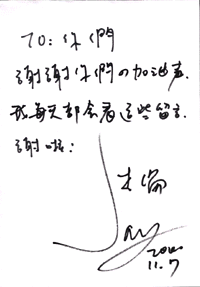 TO: 你們
謝謝你們の加油聲
我每天都會看這些留言
謝啦:
杰倫
Jay
2000
11.7